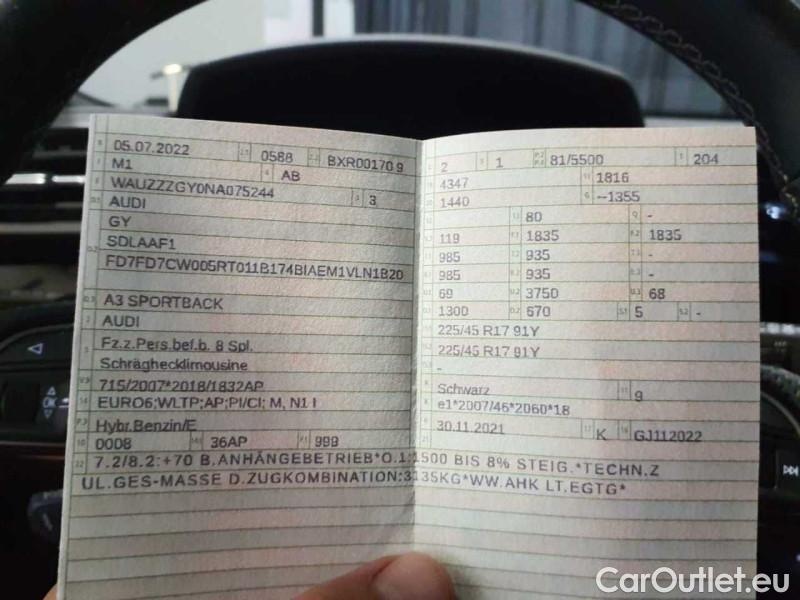 05.07.2022 0588 BXR00170 9
M1 AB
WAUZZZGY0NA075244 3
AUDI
GY
SDLAAF1
FD7FD7CW005RT011B174BIAEM1VLN1B20
A3 SPORTBACK
AUDI
Fz.z.Pers.bef.b. 8 Spl.
Schräghecklimousine
715/2007*2018/1832AP
EURO6;WLTP;AP;PI/CI; M, N1 I
Hybr.Benzin/E
0008 36AP 999
2 1 81/5500 204
4347 1816
1440 --1355
80 -
119 1835 1835
985 935 -
985 935 -
69 3750 68
1300 670 5 -
225/45 R17 91Y
225/45 R17 91Y
-
Schwarz 9
e1*2007/46*2060*18
30.11.2021 K GJ112022
7.2/8.2:+70 B.ANHÄNGEBETRIEB*O.1:1500 BIS 8% STEIG.*TECHN.Z
UL.GES-MASSE D.ZUGKOMBINATION:3135KG*WW.AHK LT.EGTG*
CarOutlet.eu